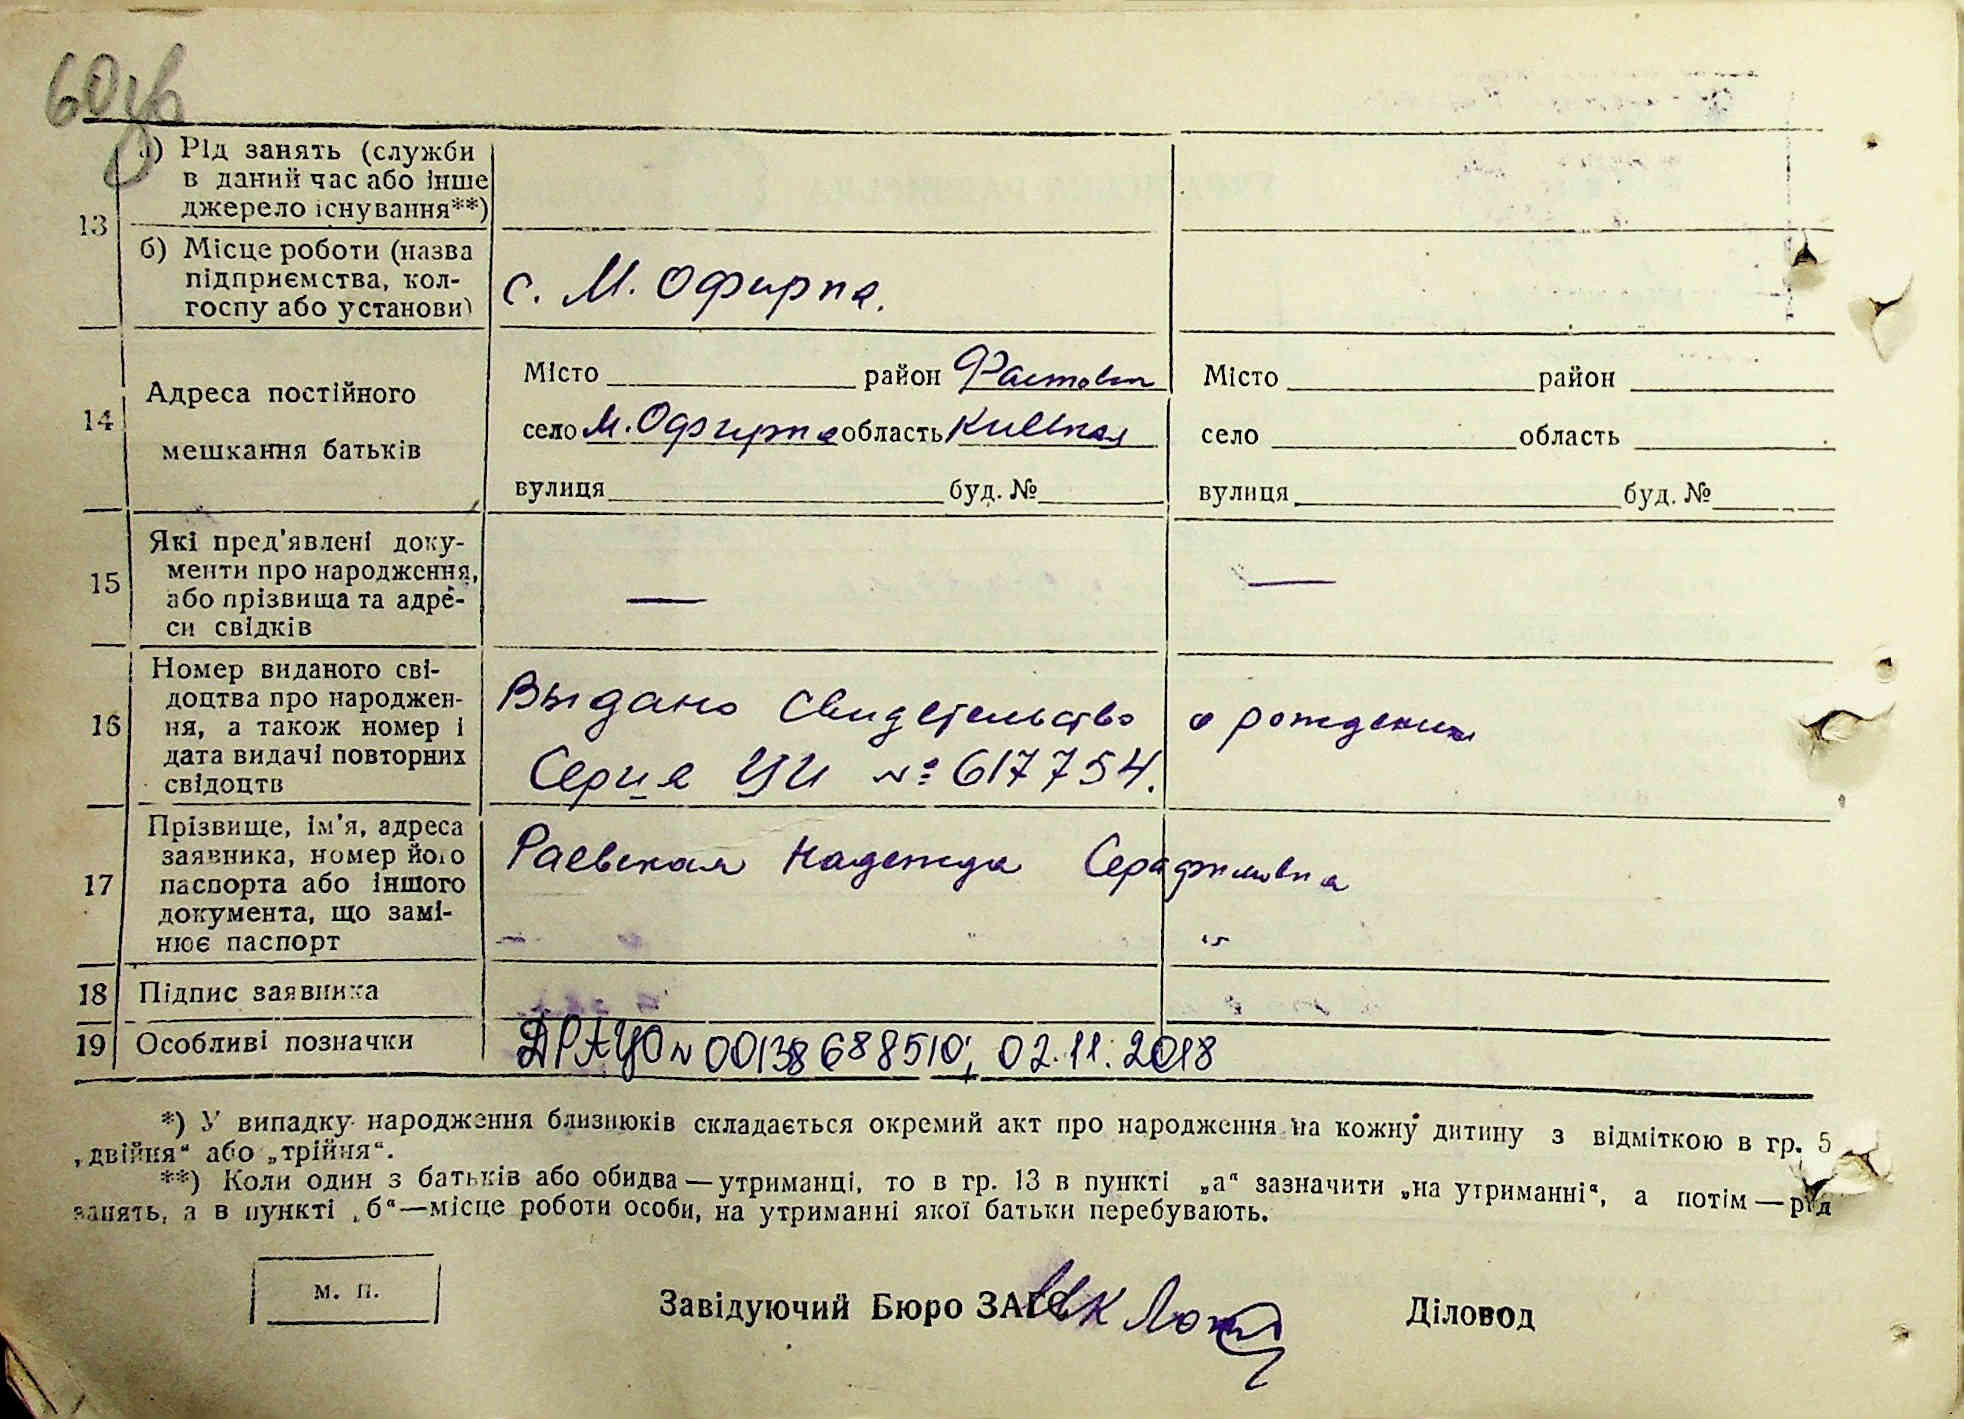 60 зв
13
а) Рід занять (служби
в даний час або інше
джерело існування**)
б) Місце роботи (назва
підприємства, кол-
госпу або установи)
с. М. Офирна.
14
Адреса постійного
мешкання батьків
Місто район Фастовск
село М. Офирна область Киевская
вулиця буд. №
Місто район
село область
вулиця буд. №
15
Які пред'явлені доку-
менти про народження,
або прізвища та адре-
си свідків
—
—
16
Номер виданого сві-
доцтва про народжен-
ня, а також номер і
дата видачі повторних
свідоцтв
Выдано свидетельство о рождении
Серия УИ № 617754.
17
Прізвище, ім'я, адреса
заявника, номер його
паспорта або іншого
документа, що замі-
нює паспорт
Раевская Надежда Серафимовна
18
Підпис заявника
19
Особливі позначки
ДРАЦО N 00138688510; 02.11.2018
*) У випадку народження близнюків складається окремий акт про народження на кожну дитину з відміткою в гр. 5
„двійня“ або „трійня“.
**) Коли один з батьків або обидва—утриманці, то в гр. 13 в пункті „а“ зазначити „на утриманні“, а потім—рід
занять, а в пункті „б“—місце роботи особи, на утриманні якої батьки перебувають.
м. п.
Завідуючий Бюро ЗАГС
Діловод